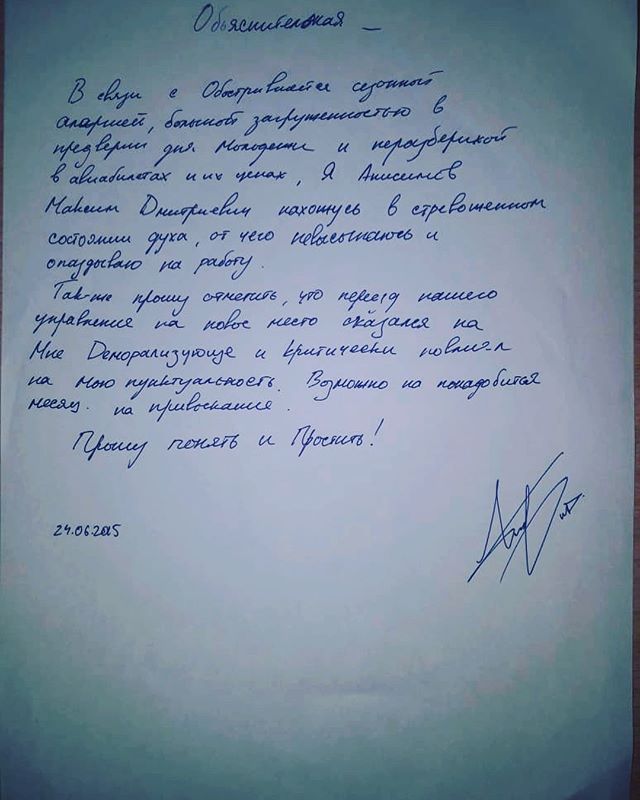 Объяснительная
В связи с Обостривается сезонный
апаршей, большой загруженностью в
предверии дня Молодежи и неразберихой
в авиабилетах и их ценах, Я Анисимов
Максим Дмитриевич нахожусь в стревоженном
состоянии духа, от чего невысыпаюсь и
опаздываю на работу.
Так-же прошу отметить, что переезд нашего
управление на новое место сказался на
Мне Деморализующе и критически повлиял
на мою пунктуальность. Возможно на понадобится
месяц. на привыкание.
Прошу понять и Простить!
24.06.2015